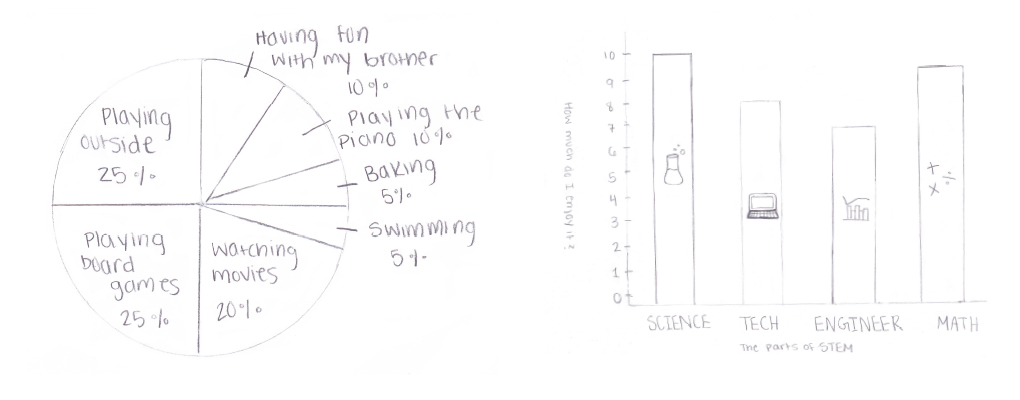 Having fun
with my brother
10%
Playing the
piano 10%
Baking
5%
Swimming
5%
Playing
outside
25%
Playing
board
games
25%
Watching
movies
20%
How much do I enjoy it?
10
9
8
7
6
5
4
3
2
1
0
+
×
%
SCIENCE TECH ENGINEER MATH
The parts of STEM